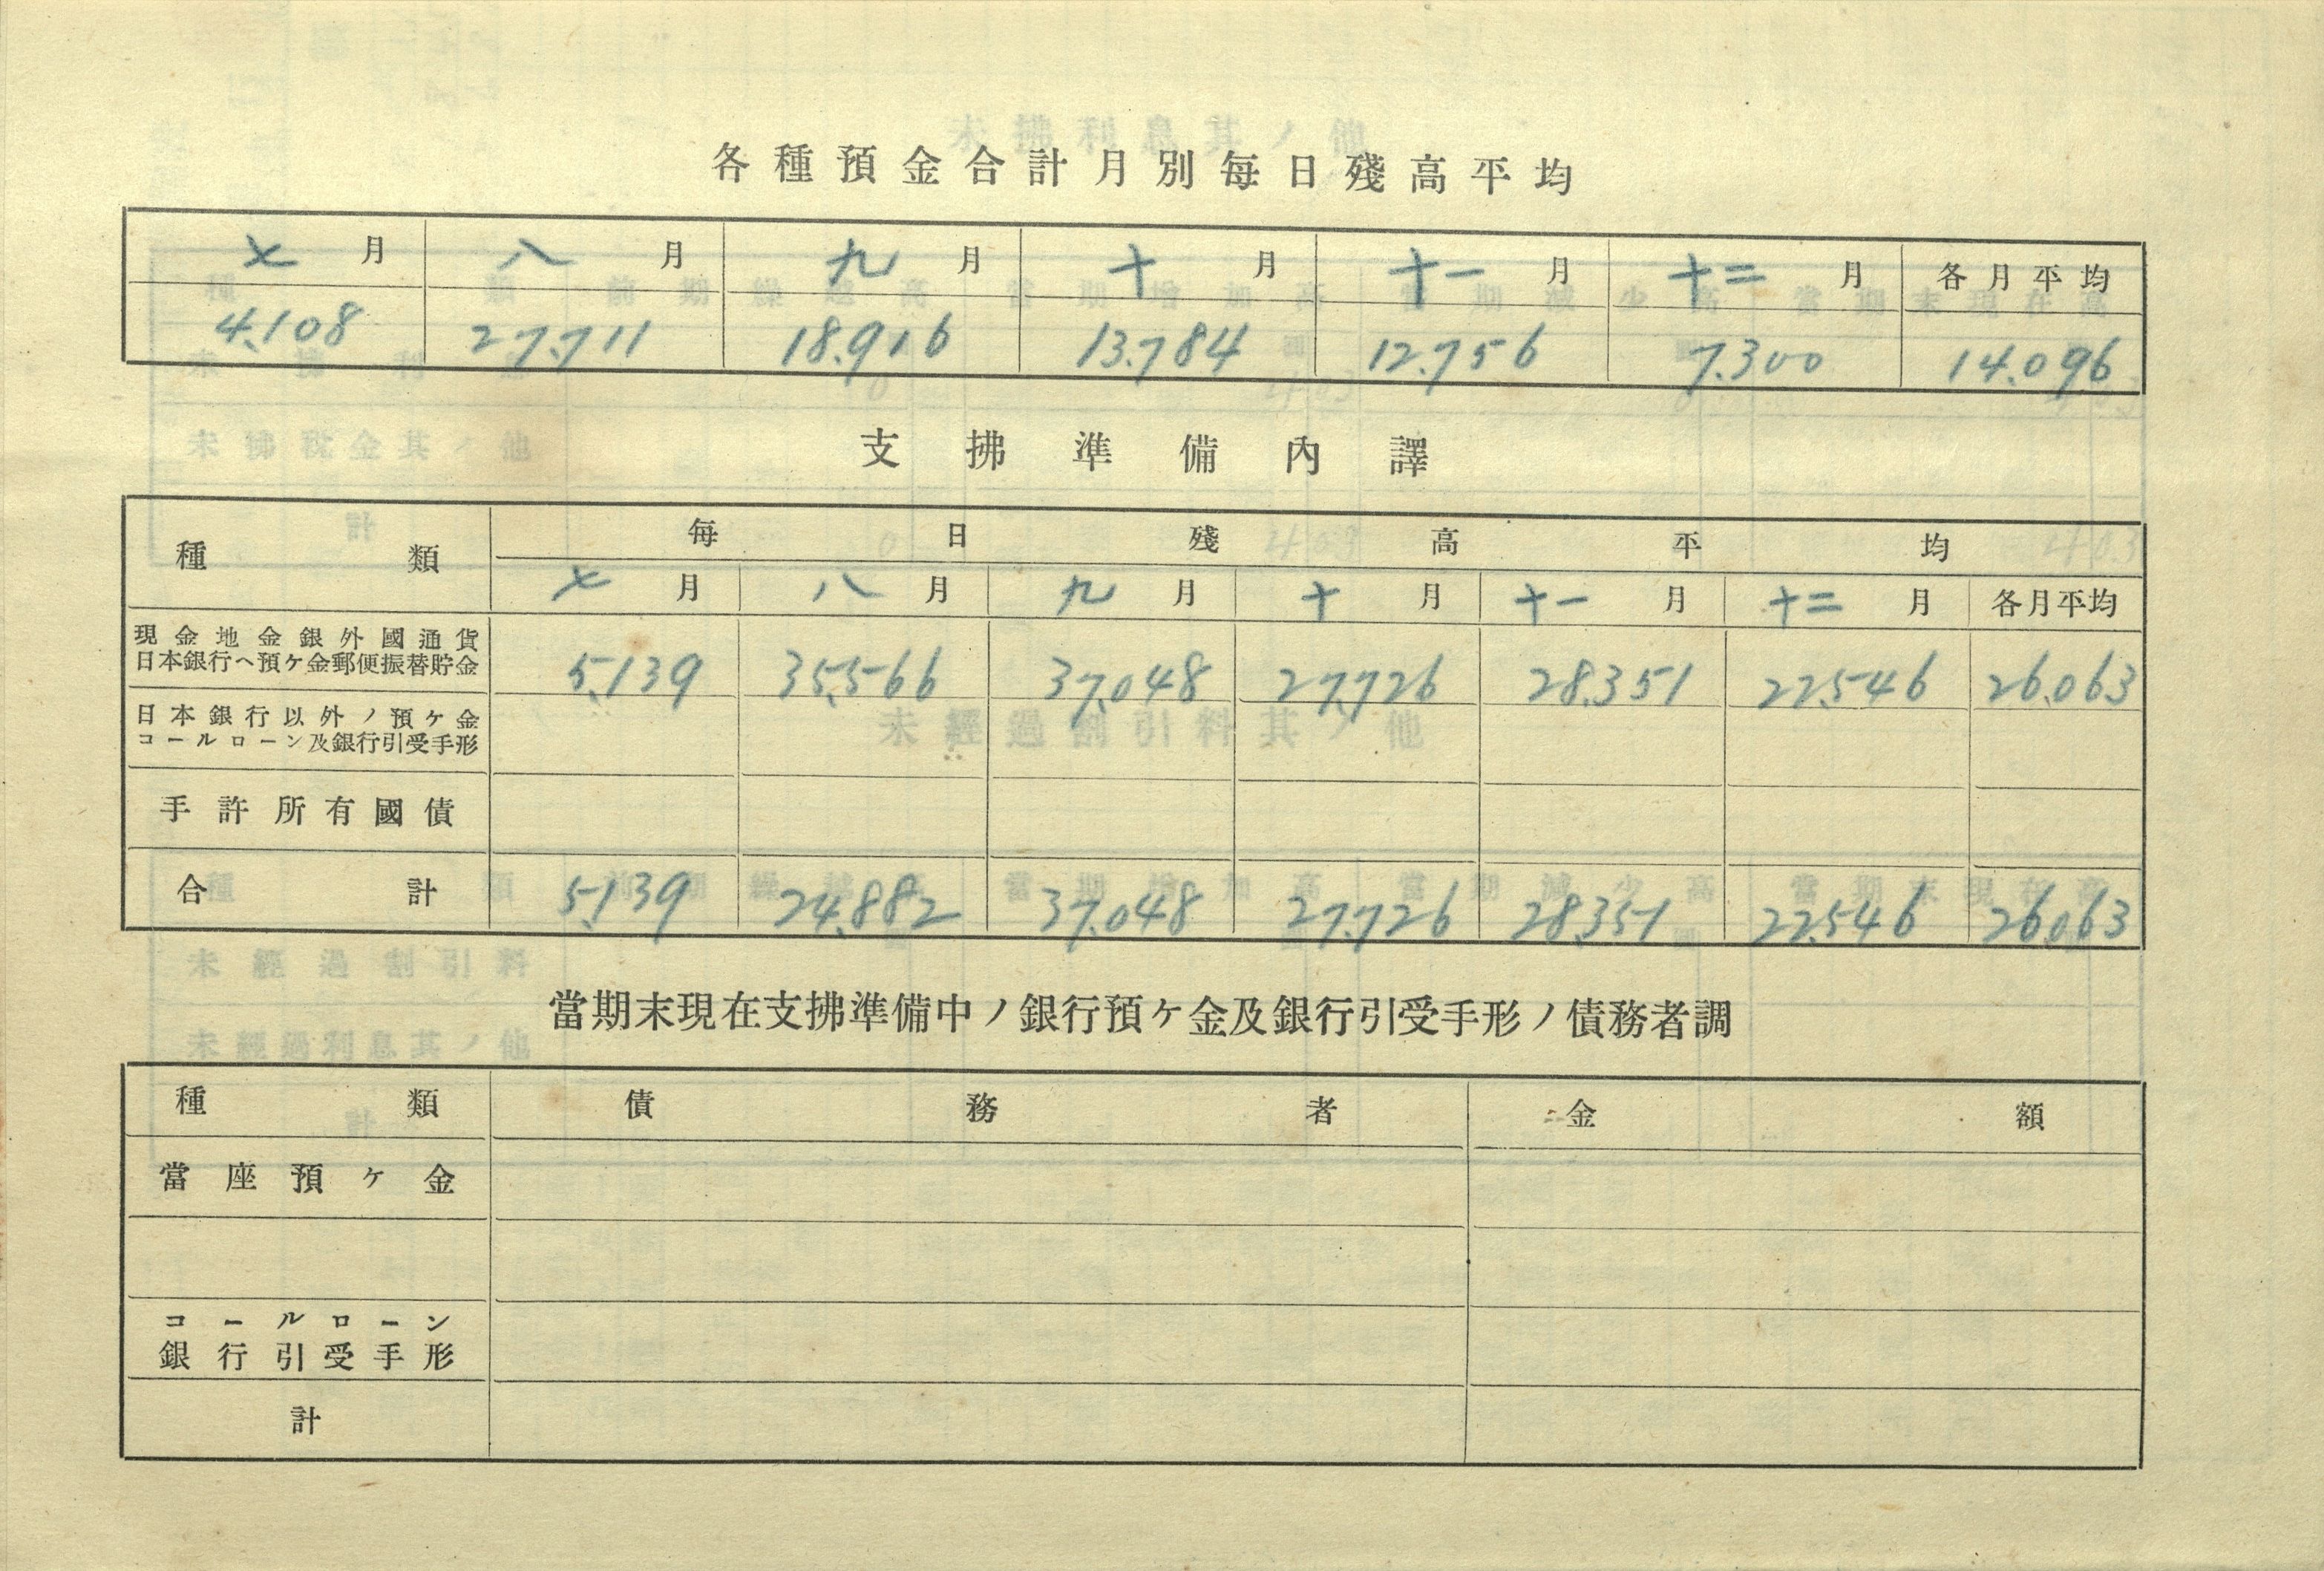 各種預金合計月別每日殘高平均
七月 八月 九月 十月 十一月 十二月 各月平均
4.108 27.711 18.916 13.784 12.756 7.300 14.096
支拂準備內譯
種類 每日殘高平均
七月 八月 九月 十月 十一月 十二月 各月平均
現金地金銀外國通貨
日本銀行ヘ預ケ金郵便振替貯金 5.139 35.566 37.048 27.726 28.351 22.546 26.063
日本銀行以外ノ預ケ金
コールローン及銀行引受手形
手許所有國債
合計 5.139 24.882 37.048 27.726 28.351 22.546 26.063
當期末現在支拂準備中ノ銀行預ケ金及銀行引受手形ノ債務者調
種類 債務者 金額
當座預ケ金
コールローン
銀行引受手形
計